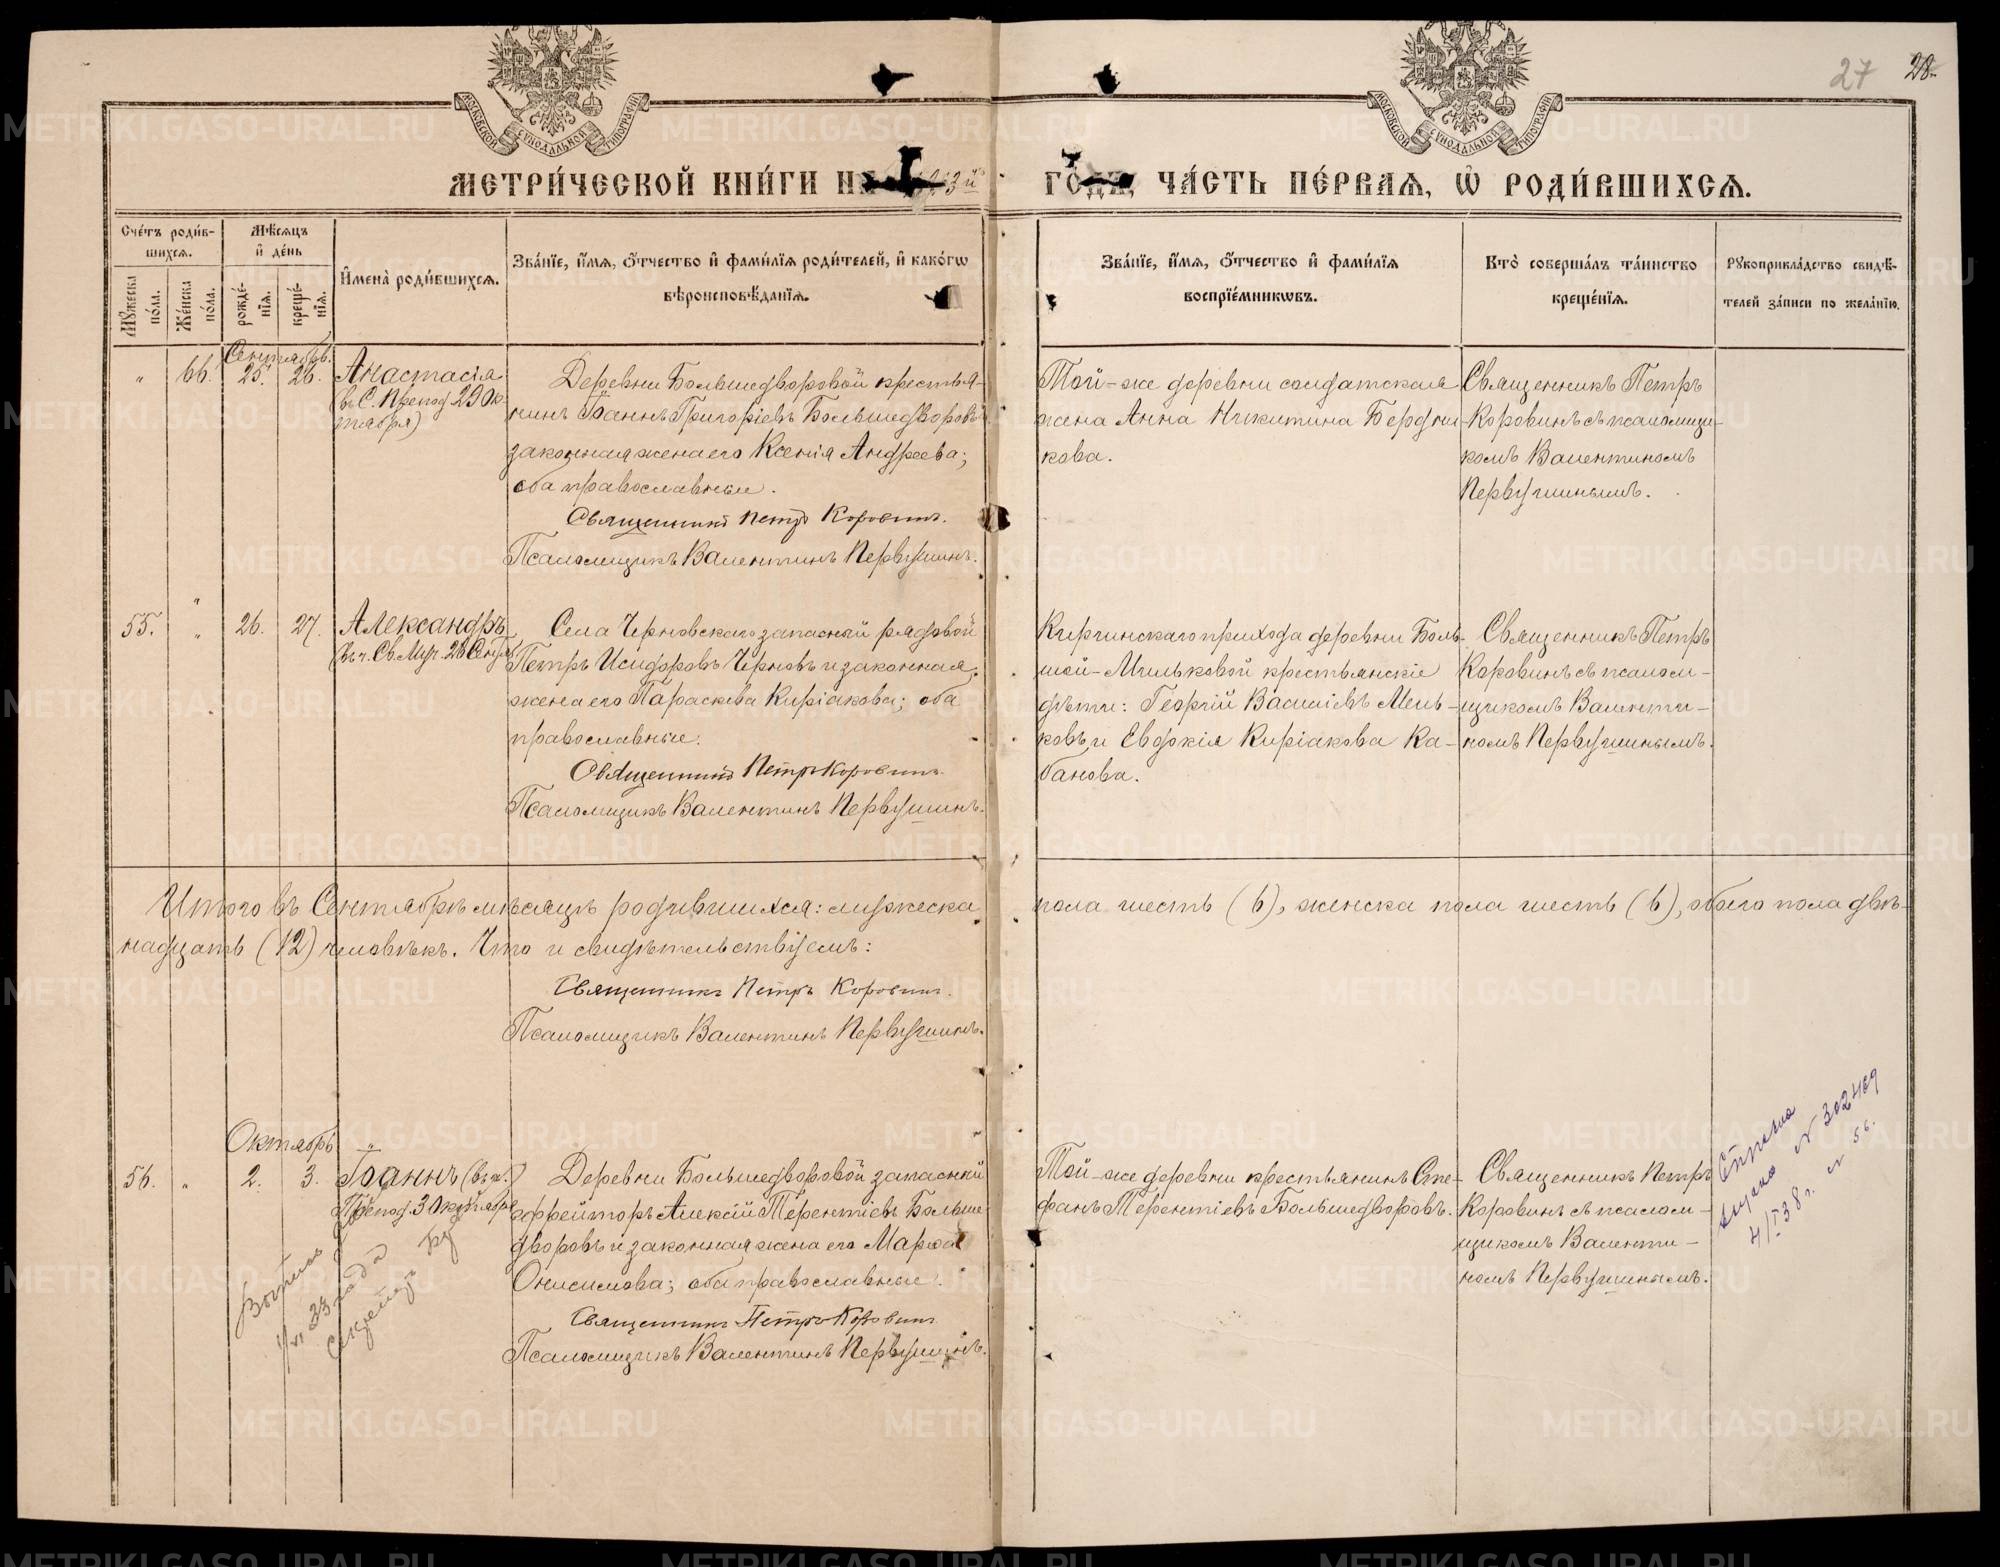 27 28.
МОСКОВСКОЙ СѴНОДАЛЬНОЙ ТИПОГРАФІИ
МОСКОВСКОЙ СѴНОДАЛЬНОЙ ТИПОГРАФІИ
МЕТРИ́ЧЕСКОЙ КНИ́ГИ НА 13й ГО́ДЪ, ЧА́СТЬ ПЕ́РВАЯ, Ѡ҆ РОДИ́ВШИХСЯ.
Сче́тъ роди́в-
шихся.
Мѣ́сяцъ
и҆ де́нь
Мꙋ́жеска
по́ла.
Же́нска
по́ла.
рожде́-
нїя.
креще́-
нїя.
И҆мена̀ роди́вшихся.
Зва́нїе, и҆́мя, ѻ҆́тчество и҆ фами́лїя роди́телей, и҆ како́гѡ
вѣроисповѣ́данїя.
Зва́нїе, и҆́мя, ѻ҆́тчество и҆ фами́лїя
воспрїе́мникѡвъ.
Кто̀ соверша́лъ та́инство
креще́нїя.
Рꙋкоприкла́дство свидѣ́-
телей за́писи по жела́нїю.
Сентябрь.
„ 66. 25. 26.
Анастасія
(въ ч. Препод 29 Ок-
тября)
Деревни Большедворовой крестья-
нинъ Іоаннъ Григоріевъ Большедворовъ
законная жена его Ксенія Андреева;
оба православные.
Священникъ Петръ Коровинъ.
Псаломщикъ Валентинъ Первушинъ.
Той-же деревни солдатская
жена Анна Никитина Бердни-
кова.
Священникъ Петръ
Коровинъ съ псаломщи-
комъ Валентиномъ
Первушинымъ.
55. „ 26. 27.
Александръ
(въ ч. Св. Муч. 28 Сент.)
Села Черновскаго запасный рядовой
Петръ Исидоровъ Черновъ и законная
жена его Параскева Киріакова; оба
православные.
Священникъ Петръ Коровинъ.
Псаломщикъ Валентинъ Первушинъ.
Киргинскаго прихода деревни Боль-
шой-Мильковой крестьянскіе
дѣти: Георгій Василіевъ Мель-
ковъ и Евдокія Киріакова Ка-
банова.
Священникъ Петръ
Коровинъ съ псалом-
щикомъ Валенти-
номъ Первушинымъ.
Итого въ Сентябрѣ мѣсяцѣ родившихся: мужеска пола шесть (6), женска пола шесть (6), обоего пола двѣ-
надцать (12) человѣкъ. Что и свидѣтельствуемъ:
Священникъ Петръ Коровинъ.
Псаломщикъ Валентинъ Первушинъ.
Октябрь
56. „ 2. 3.
Іоаннъ (въ ч.
Препод. 30 октября
Деревни Большедворовой запасный
ефрейторъ Алексій Терентіевъ Больше
дворовъ и законная жена его Марѳа
Онисимова; оба православные.
Священникъ Петръ Коровинъ
Псаломщикъ Валентинъ Первушинъ.
Той-же деревни крестьянинъ Сте-
фанъ Терентіевъ Большедворовъ.
Священникъ Петръ
Коровинъ съ псалом-
щикомъ Валенти-
номъ Первушинымъ.
Справка
выдана № 302469
4/I 38 г. № 56.
33 года
Секретарь